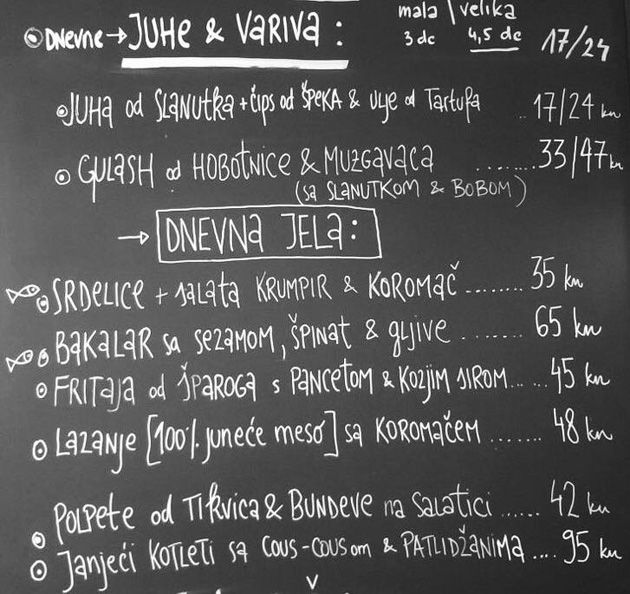 Dnevne → JUHE & VARIVA : mala | velika
3 dc 4,5 dc 17/24
JUHA od SLANUTKA + čips od ŠPEKA & ulje od TARTUFA .. 17/24 kn
GULASH od HOBOTNICE & MUZGAVACA ........ 33/47 kn
(sa SLANUTKOM & BOBOM)
→ DNEVNA JELA :
SRDELICE + salata KRUMPIR & KOROMAČ ........ 35 kn
BAKALAR sa SEZAMOM, ŠPINAT & gljive ........ 65 kn
FRITAJA od ŠPAROGA s PANCETOM & KOZJIM SIROM ...... 45 kn
LAZANJE [100% juneće meso] sa KOROMAČEM ....... 48 kn
POLPETE od TIKVICA & BUNDEVE na SALATICI ...... 42 kn
Janjeći KOTLETI sa COUS-COUSom & PATLIDŽANIMA .... 95 kn